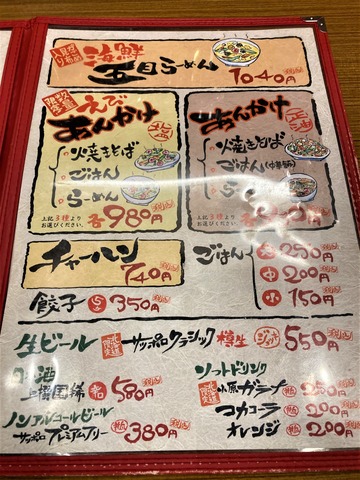 海鮮
五目らーめん 1040円
えび
あんかけ
火焼きそば
ごはん
らーめん
上記3種より
お選びください。
各980円
あんかけ
火焼きそば
ごはん(中華飯)
上記3種より
お選びください。
チャーハン
740円
餃子 5コ 350円
ごはん 大 250円
中 200円
小 150円
生ビール サッポロクラシック 樽生 ジョッキ 550円
酒
上撰国稀 580円
ノンアルコールビール
サッポロプレミアムフリー 380円
ソフトドリンク
小原ガラナ 250円
コカコーラ 200円
オレンジ 200円